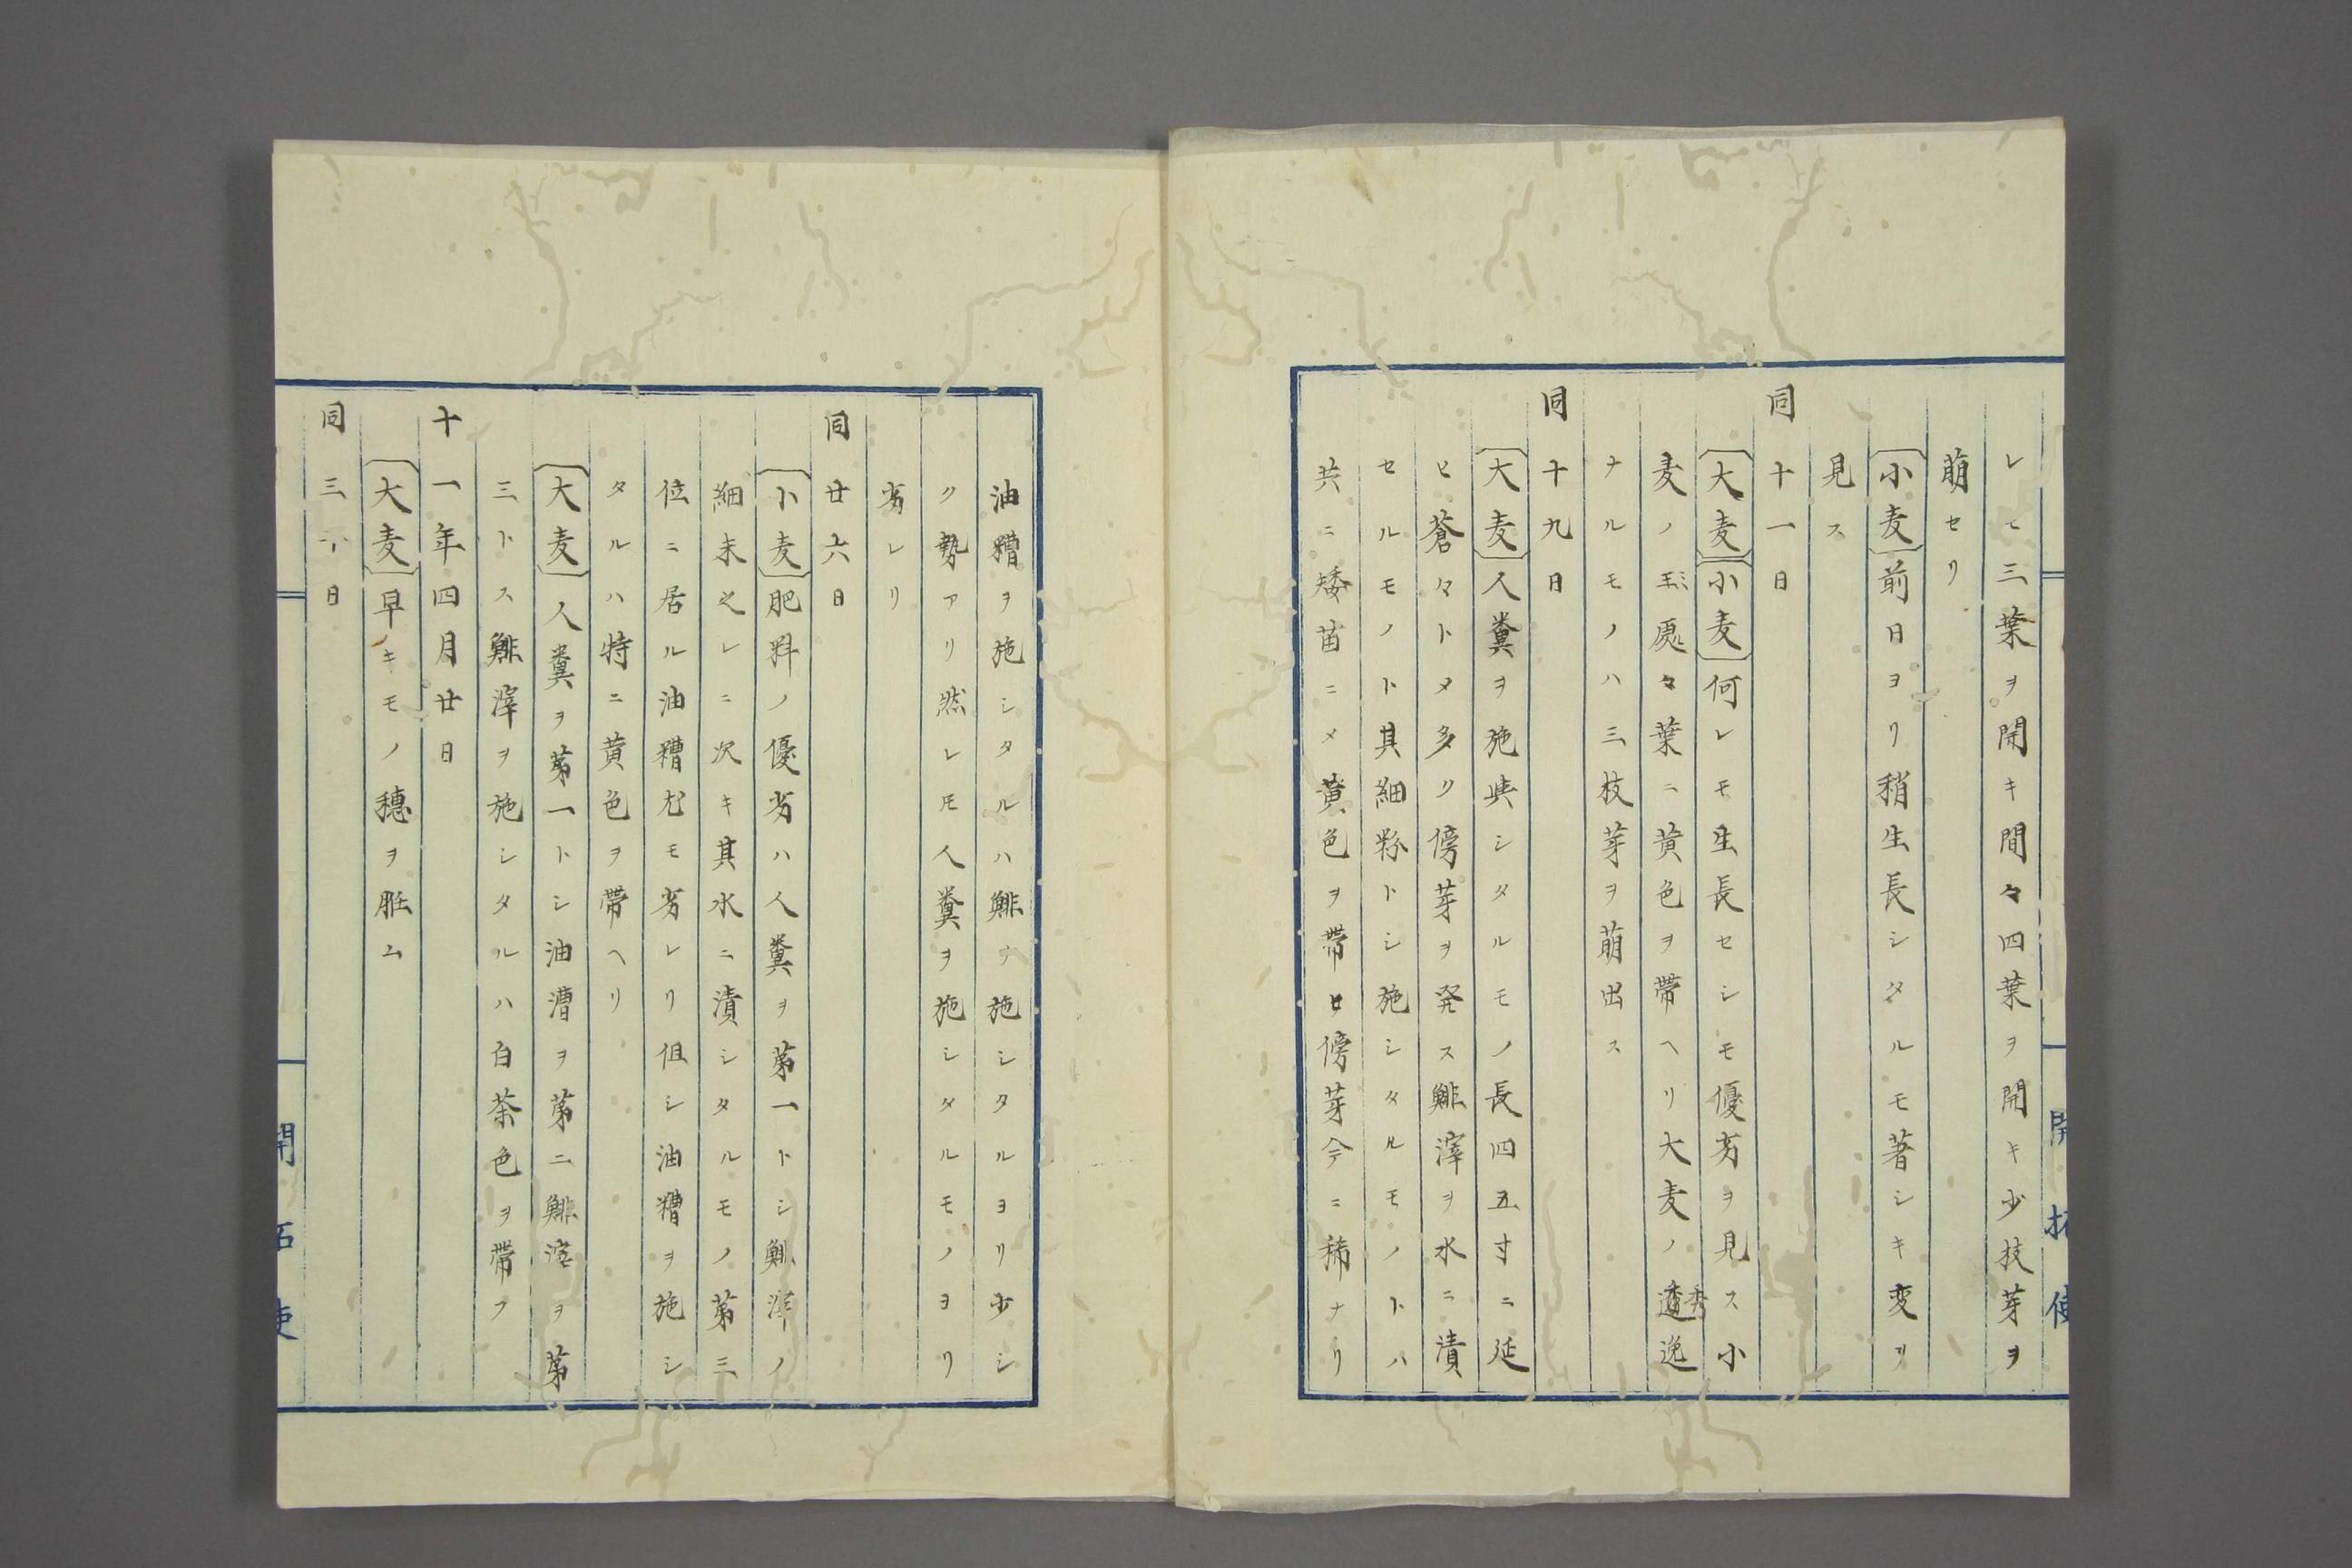 レモ三葉ヲ開キ間々四葉ヲ開キ少枝芽ヲ
萠セリ
〔小麦〕前日ヨリ稍生長シタルモ著シキ変リ
見ス
同十一日
〔大麦〕〔小麦〕何レモ生長セシモ優劣ヲ見ス小
麦ノミ処々葉ニ黄色ヲ帯ヘリ大麦ノ透秀逸
ナルモノハ三枝芽ヲ萠出ス
同十九日
〔大麦〕人糞ヲ施与シタルモノ長四五寸ニ延
ヒ蒼々トメ多ク傍芽ヲ発ス鯡滓ヲ水ニ漬
セルモノト其細粉トシ施シタルモノトハ
共ニ矮苗ニメ黄色ヲ帯ヒ傍芽今ニ稀ナリ
開拓使
油糟ヲ施シタルハ鯡ヲ施シタルヨリ少シ
ク勢アリ然レ𪜈人糞ヲ施シタルモノヨリ
劣レリ
同廿六日
〔小麦〕肥料ノ優劣ハ人糞ヲ第一トシ鯡滓ノ
細末之レニ次キ其水ニ漬シタルモノ第三
位ニ居ル油糟尤モ劣レリ但シ油糟ヲ施シ
タルハ特ニ黄色ヲ帯ヘリ
〔大麦〕人糞ヲ第一トシ油漕ヲ第二鯡滓ヲ第
三トス鯡滓ヲ施シタルハ白茶色ヲ帯フ
十一年四月廿日
〔大麦〕早キモノ穗ヲ胚ム
同三十日
開拓使